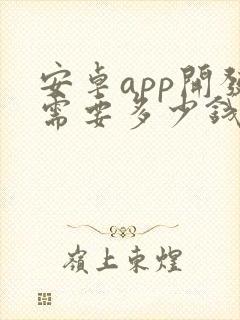 安卓app開發
需要多少錢
嶺上東煌